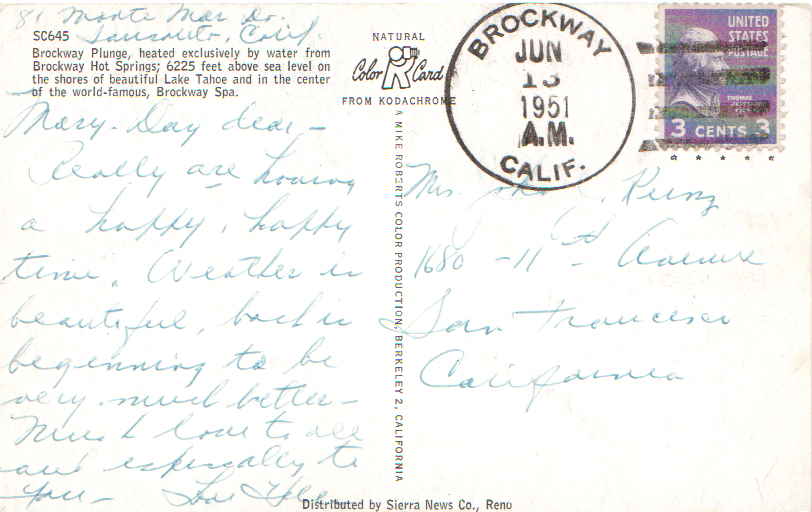 81 Monte Mar Dr.
Sausalito, Calif.
SC645
Brockway Plunge, heated exclusively by water from
Brockway Hot Springs; 6225 feet above sea level on
the shores of beautiful Lake Tahoe and in the center
of the world-famous, Brockway Spa.
NATURAL
Color Card
FROM KODACHROME
A MIKE ROBERTS COLOR PRODUCTION, BERKELEY 2, CALIFORNIA
BROCKWAY
JUN
13
1951
A.M.
CALIF.
UNITED
STATES
POSTAGE
THOMAS
JEFFERSON
3 CENTS 3
Mary-Day dear -
Really are having
a happy, happy
time. Weather is
beautiful, back is
beginning to be
very much better -
Much love to all
and especially to
you -
Mrs. John
1680 - 11th Avenue
San Francisco
California
Distributed by Sierra News Co., Reno